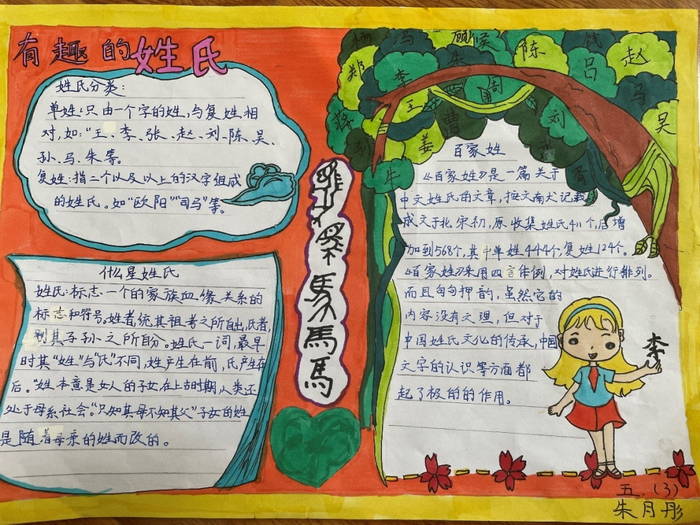 有趣的姓氏
姓氏分类:
单姓:只由一个字的姓,与复姓相
对,如:“王、李、张、赵、刘、陈、吴、
孙、马、朱等。
复姓:指二个以及以上的汉字组成
的姓氏。如“欧阳”“司马”等。
什么是姓氏
姓氏:标志一个的家族血缘关系的
标志和符号。姓者,统其祖考之所自出,氏者,
别其子孙之所自分。姓氏一词,最早
时其“姓”与“氏”不同,姓产生在前,氏产生在
后。“姓”本意是女人的子女在上古时期,人类还
处于母系社会。“只知其母不知其父”子女的姓
是随着母亲的姓而改的。
馬馬
顾
侯
陈
吕
赵
郑
李
朱
马
周
王
吴
曹
刘
姜
牛
百家姓
《百家姓》是一篇关于
中文姓氏的文章,按文献记载,
成文于北宋初,原收集姓氏411个,后增
加到568个,其中单姓444个复姓124个。
《百家姓》采用四言体例,对姓氏进行排列。
而且句句押韵,虽然它的
内容没有文理,但对于
中国姓氏文化的传承,中国
文字的认识等方面都
起了极的的作用。
李
五(3)
朱月彤